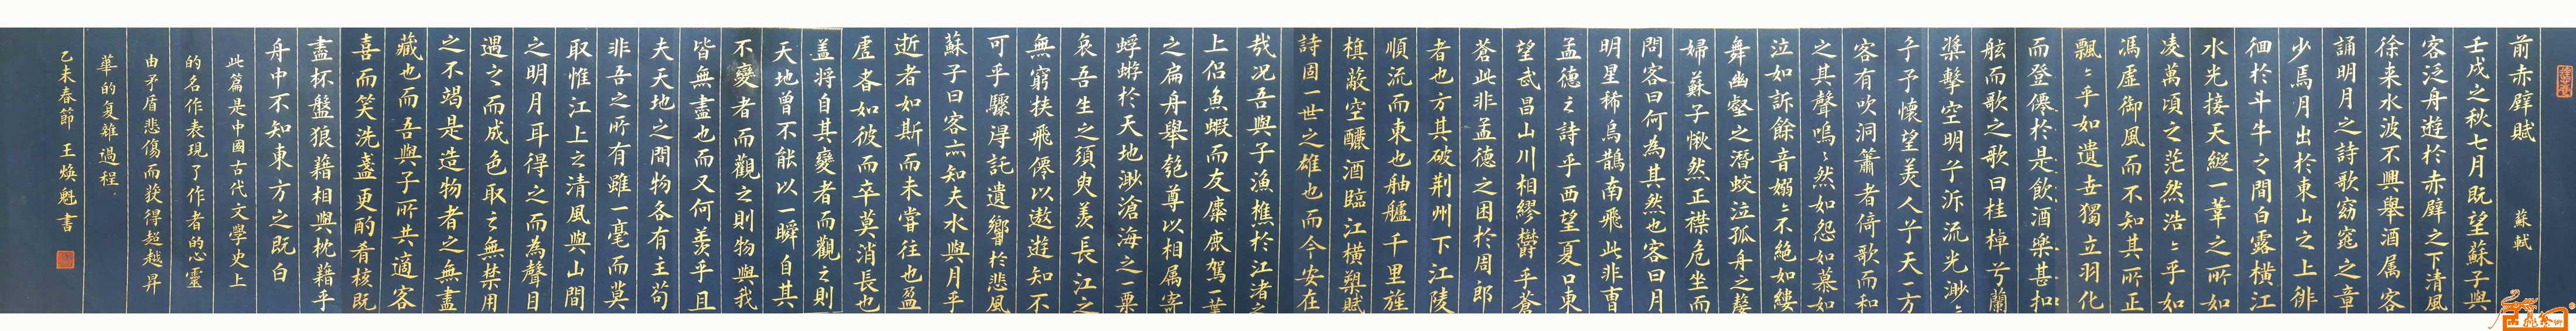 前赤壁賦 蘇軾
壬戌之秋七月既望蘇子與
客泛舟遊於赤壁之下清風
徐来水波不興舉酒属客
誦明月之詩歌窈窕之章
少焉月出於東山之上徘
徊於斗牛之間白露横江
水光接天縱一葦之所如
凌萬頃之茫然浩〻乎如
馮虚御風而不知其所止
飄〻乎如遺世獨立羽化
而登僊於是飲酒樂甚扣
舷而歌之歌曰桂棹兮蘭
槳擊空明兮泝流光渺〻
兮予懷望美人兮天一方
客有吹洞簫者倚歌而和
之其聲嗚〻然如怨如慕如
泣如訴餘音嫋〻不絕如縷
舞幽壑之潛蛟泣孤舟之嫠
婦蘇子愀然正襟危坐而
問客曰何為其然也客曰月
明星稀烏鵲南飛此非曹
孟德之詩乎西望夏口東
望武昌山川相繆欝乎蒼
蒼此非孟德之困於周郎
者也方其破荆州下江陵
順流而東也舳艫千里旌
旗蔽空釃酒臨江横槊賦
詩固一世之雄也而今安在
哉况吾與子漁樵於江渚之
上侣魚蝦而友麋鹿駕一葉
之扁舟舉匏尊以相属寄
蜉蝣於天地渺滄海之一粟
哀吾生之須臾羨長江之
無窮挟飛僊以遨遊知不
可乎驟得託遺響於悲風
蘇子曰客亦知夫水與月乎
逝者如斯而未嘗往也盈
虚者如彼而卒莫消長也
盖将自其變者而觀之則
天地曾不能以一瞬自其
不變者而觀之則物與我
皆無盡也而又何羨乎且
夫天地之間物各有主苟
非吾之所有雖一毫而莫
取惟江上之清風與山間
之明月耳得之而為聲目
遇之而成色取之無禁用
之不竭是造物者之無盡
藏也而吾與子所共適客
喜而笑洗盞更酌肴核既
盡杯盤狼藉相與枕藉乎
舟中不知東方之既白
此篇是中國古代文學史上
的名作表現了作者的心靈
由矛盾悲傷而獲得超越昇
華的复雜過程
乙未春節 王焕魁書